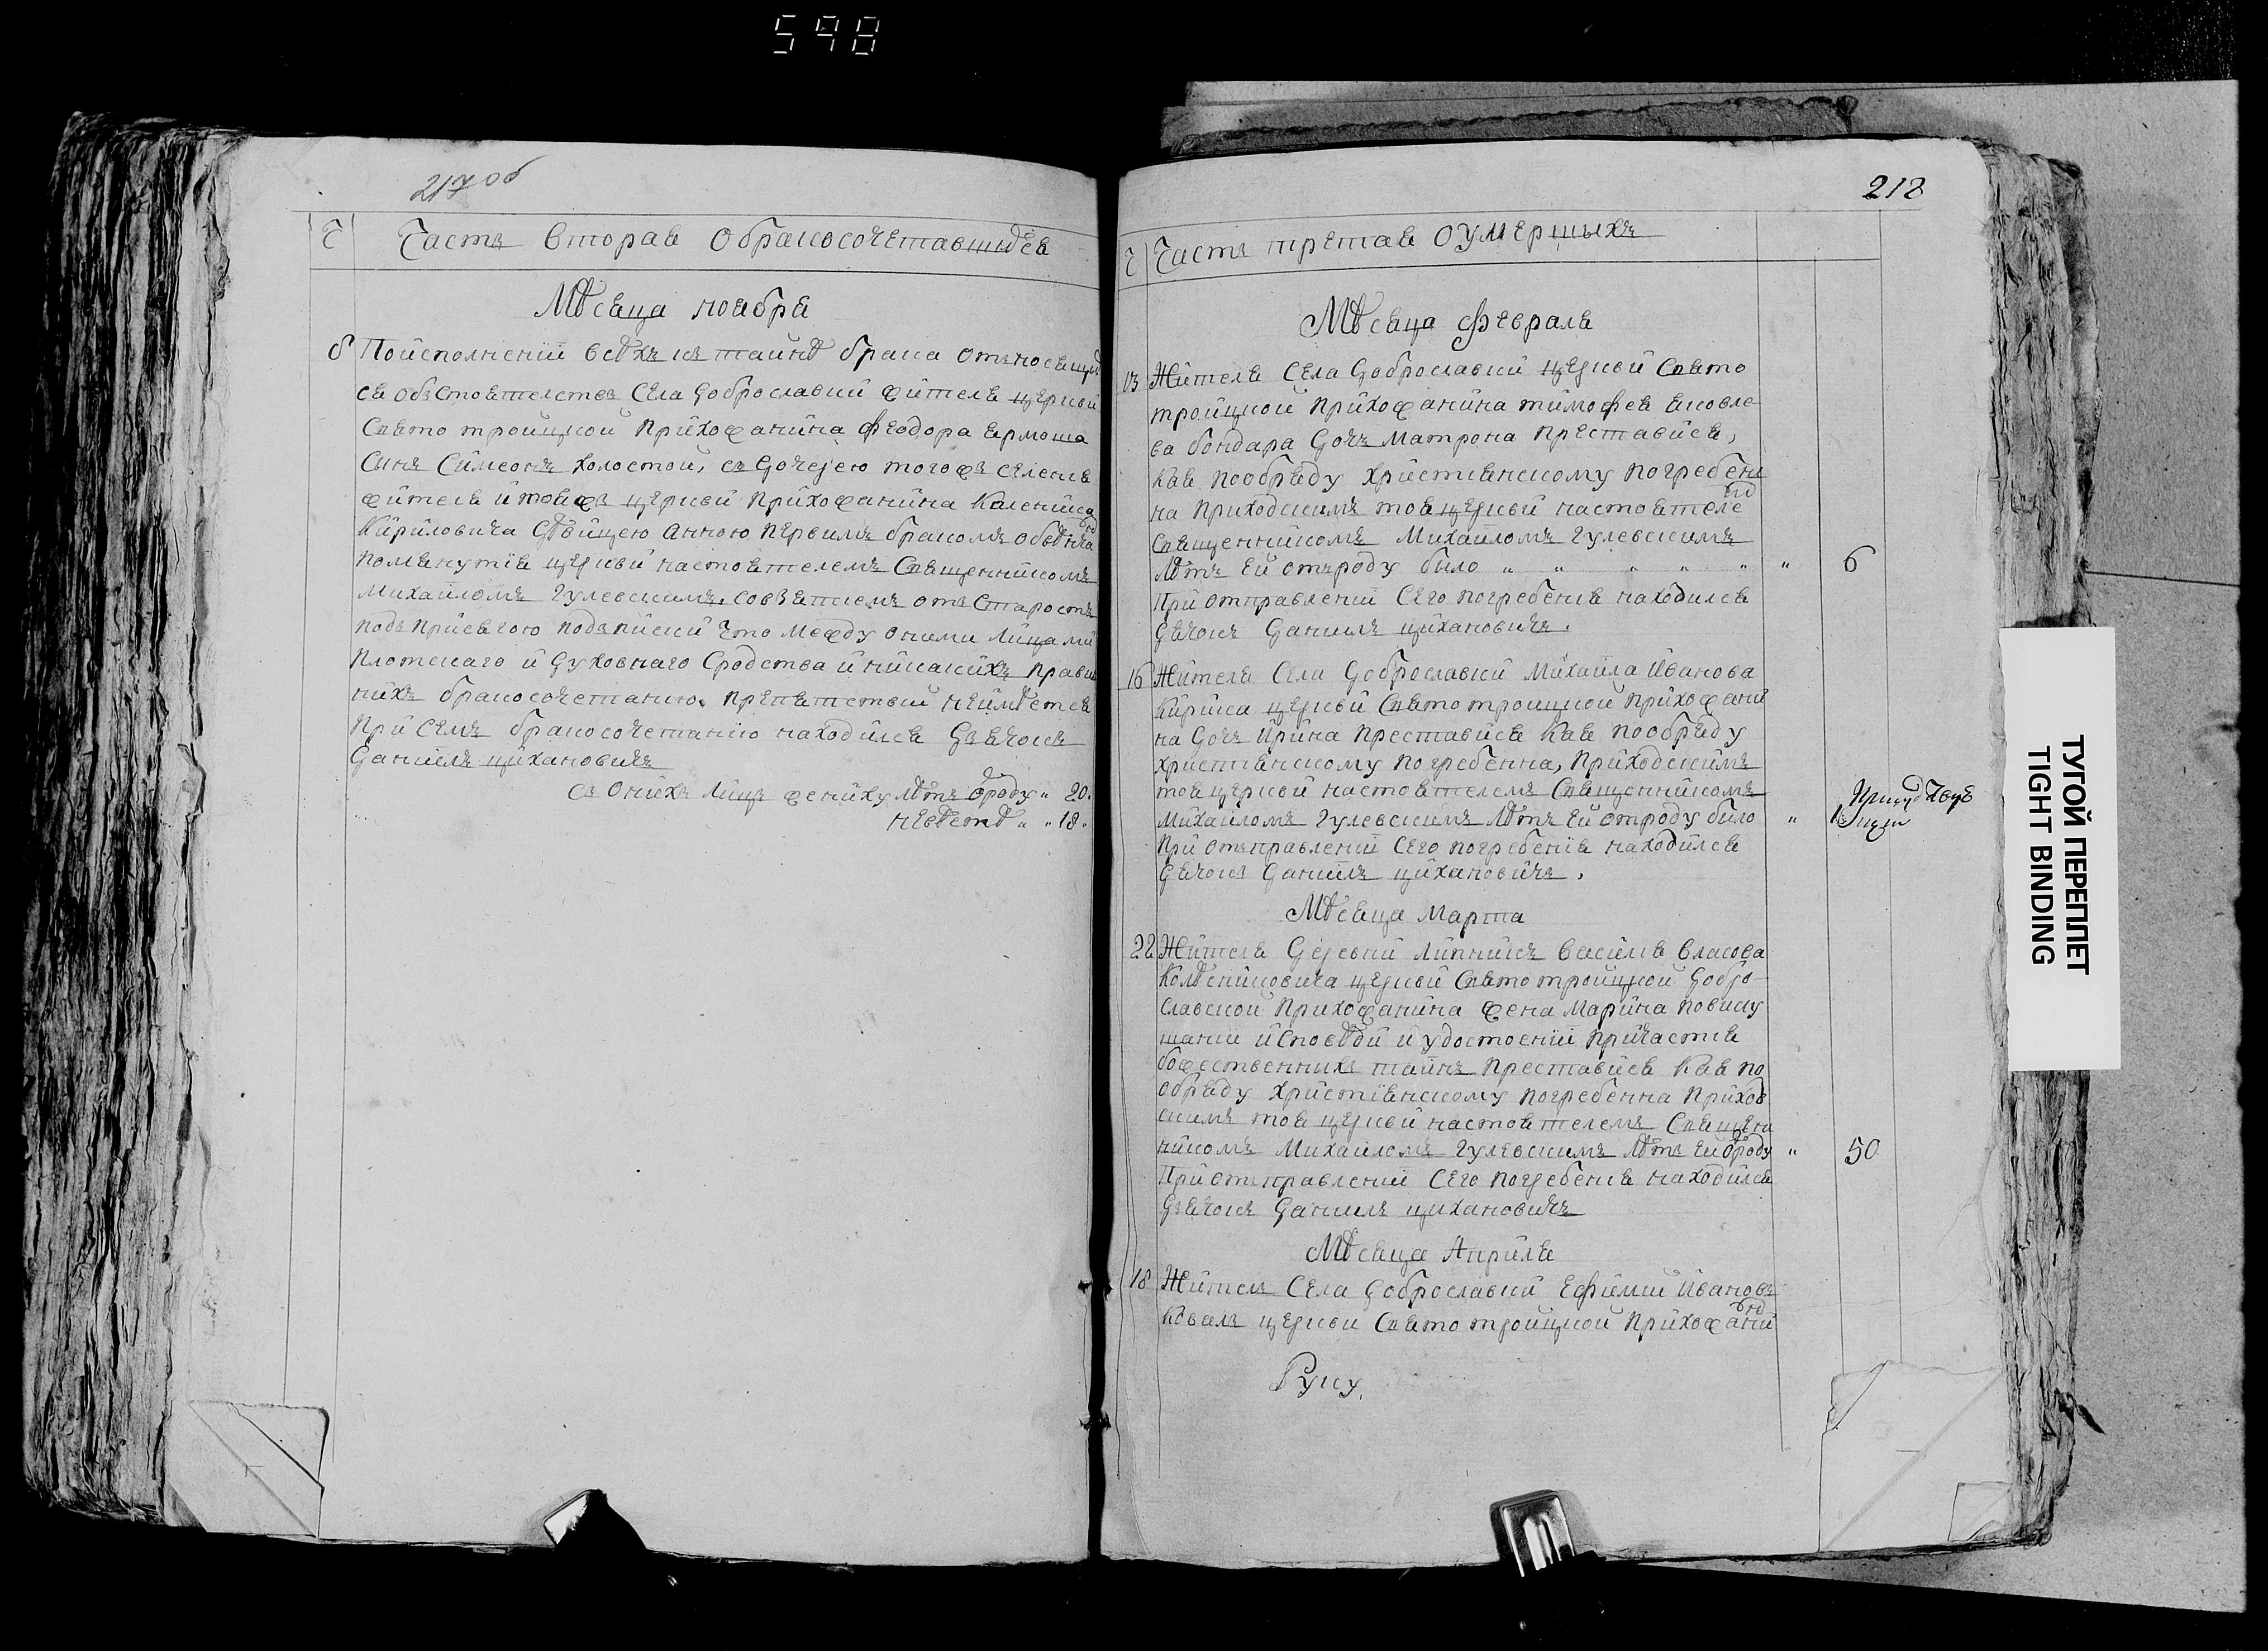 598
217 об
Ч Часть вторая о бракосочетавшихся
Месяца ноября
8 По исполнении всехъ къ тайне брака относящих
ся обстоятелствъ села Доброславки жителя церкви
Свято троицкой прихожанина Феодора Ермоша
сынъ Симеонъ холостой, съ дочерею тогожъ селения
жителя и тояжъ церкви прихожанина Каленика
Кириловича девицею Анною первимъ бракомъ обвенча
помянутия церкви настоятелемъ Священникомъ
Михаиломъ Гулевскимъ. со взятиемъ отъ старостъ
подъ присягою подъписки что между оними лицами
плотскаго и духовнаго сродства и никакихъ прави
нихъ бракосочетанию препятствий не имеется
При семъ бракосочетанию находился дьячокъ
Даниилъ Цихановичъ
съ онихъ лицъ жениху летъ отроду " 20.
невесте " " 18.
218
Ч Часть третая о умершыхъ
Месяца февраля
13 Жителя села Доброславки церкви Свято
троицкой прихожанина Тимофея Яковле-
ва Бондара дочъ Матрона преставися,
кая по обряду християнскому погребен
на приходскимъ тоя церкви настоятеле
Священникомъ Михаиломъ Гулевскимъ
летъ ей отъроду било " " " " " " 6
При отправлении сего погребения находился
дячокъ Даниилъ Цихановичъ.
16 Жителя села Доброславки Михаила Иванова
церкви Свято троицкой прихожани
на дочъ Ирина преставися кая по обряду
християнскому погребенна, приходскимъ
тоя церкви настоятелемъ Священникомъ
Михаиломъ Гулевскимъ летъ ей отроду било "
При отъправлении сего погребения находился
дячокъ Даниилъ Цихановичъ.
Месяца Марта
22 Жителя деревни Липникъ Василия Власова
Колесниковича церкви Свято троицкой Добро-
славской прихожанина жена Марина по вислу
шании исповеди и удостоении причастия
божественнихъ тайнъ преставися кая по
обряду християнскому погребенна приход
скимъ тоя церкви настоятелемъ Священ
никомъ Михаиломъ Гулевскимъ летъ ей отроду " 50
При отъправлении сего погребения находился
дьячокъ Даниилъ Цихановичъ
Месяца Априля
18 Житель села Доброславки Ефимий Ивановъ
Коваль церкви Свято троицкой прихожани
Руку
ТУГОЙ ПЕРЕПЛЕТ
TIGHT BINDING